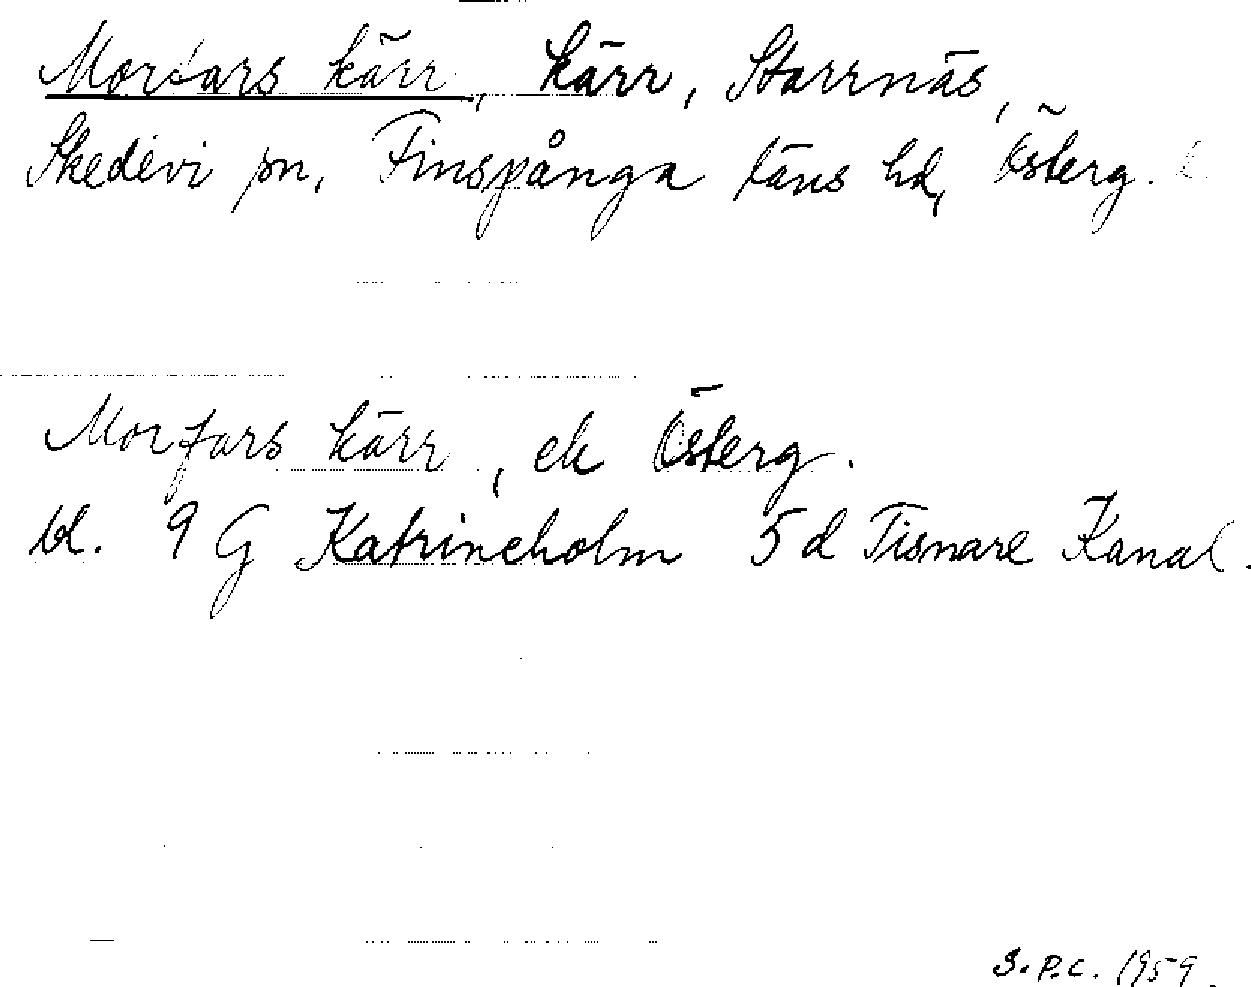 Morfars kärr, kärr, Starrnäs,
Skedevi sn, Finspånga läns hd, Österg. l.
Morfars kärr, ek Österg.
bl. 9 G Katrineholm 5 d Tisnare Kanal.
S.P.C. 1959.